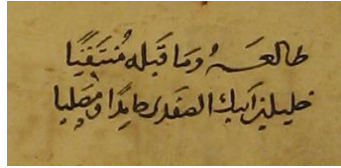 طالعه وما قبله منتقيا
خليل بن ايبك الصفدى حامدا ومصليا